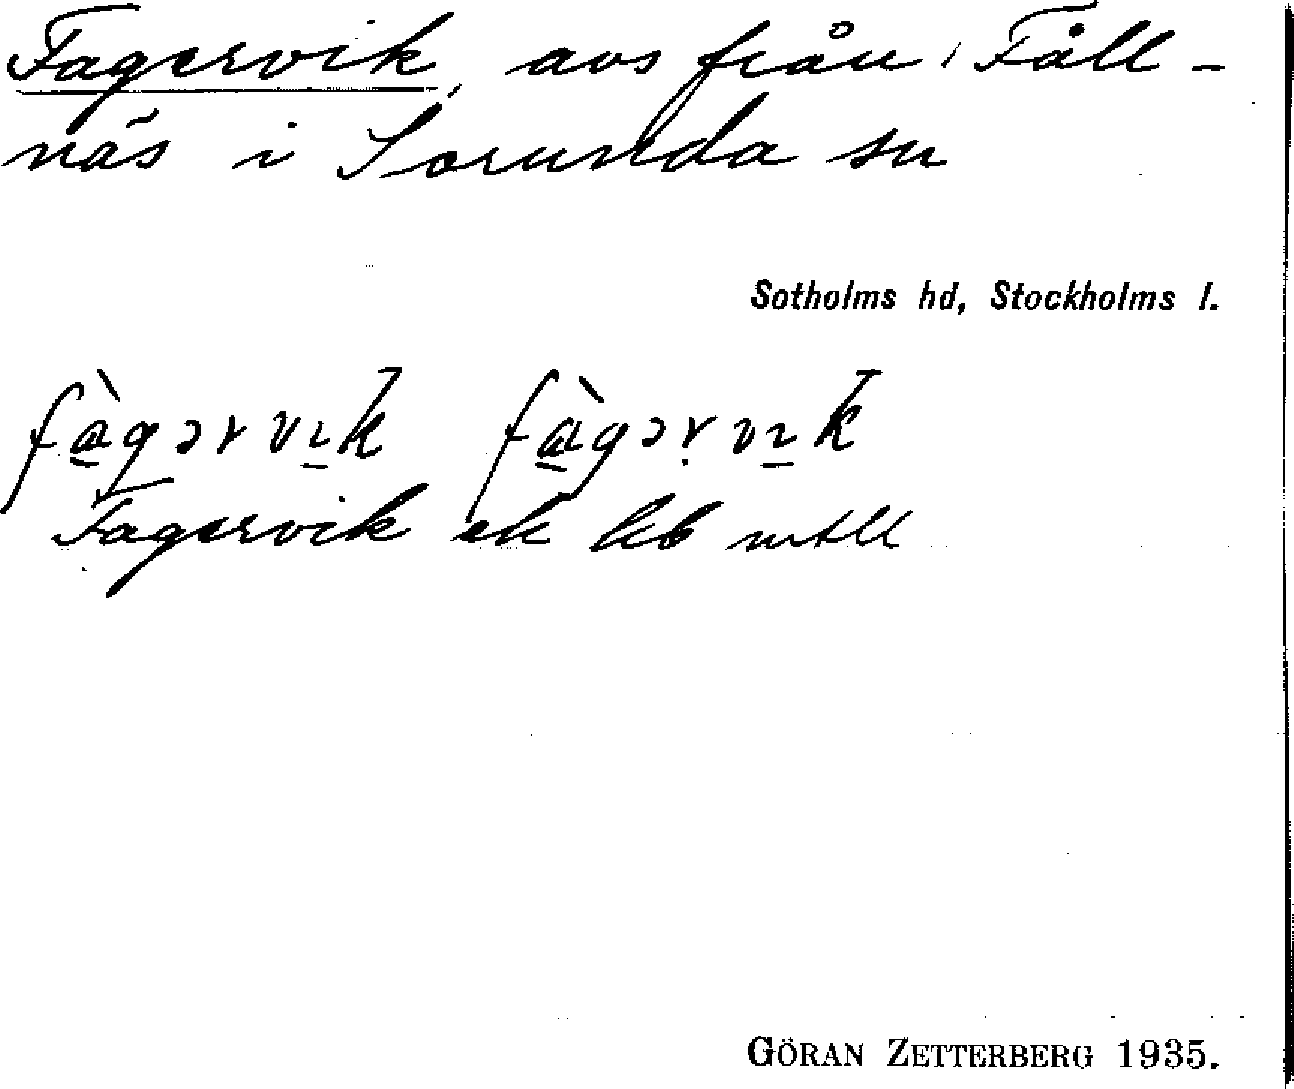 Fagervik, avs från Fåll-
näs i Sorunda sn
Sotholms hd, Stockholms l.
fàgərvık fàgərvık
Fagervik ek
GÖRAN ZETTERBERG 1935.